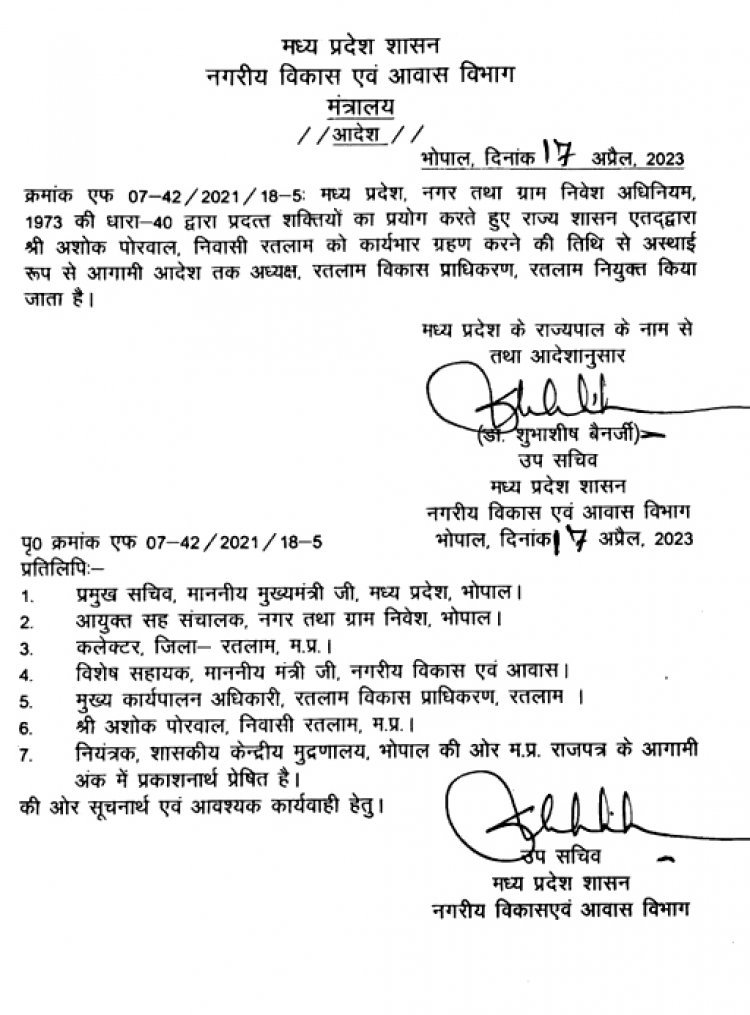 मध्य प्रदेश शासन
नगरीय विकास एवं आवास विभाग
मंत्रालय
//आदेश//
भोपाल, दिनांक 17 अप्रैल, 2023
क्रमांक एफ 07–42/2021/18-5: मध्य प्रदेश, नगर तथा ग्राम निवेश अधिनियम,
1973 की धारा–40 द्वारा प्रदत्त शक्तियों का प्रयोग करते हुए राज्य शासन एतद्द्वारा
श्री अशोक पोरवाल, निवासी रतलाम को कार्यभार ग्रहण करने की तिथि से अस्थाई
रूप से आगामी आदेश तक अध्यक्ष, रतलाम विकास प्राधिकरण, रतलाम नियुक्त किया
जाता है।
मध्य प्रदेश के राज्यपाल के नाम से
तथा आदेशानुसार
(डॉ. शुभाशीष बैनर्जी)
उप सचिव
मध्य प्रदेश शासन
नगरीय विकास एवं आवास विभाग
पृ0 क्रमांक एफ 07–42/2021/18-5 भोपाल, दिनांक 17 अप्रैल, 2023
प्रतिलिपिः–
1. प्रमुख सचिव, माननीय मुख्यमंत्री जी, मध्य प्रदेश, भोपाल।
2. आयुक्त सह संचालक, नगर तथा ग्राम निवेश, भोपाल।
3. कलेक्टर, जिला– रतलाम, म.प्र.।
4. विशेष सहायक, माननीय मंत्री जी, नगरीय विकास एवं आवास।
5. मुख्य कार्यपालन अधिकारी, रतलाम विकास प्राधिकरण, रतलाम ।
6. श्री अशोक पोरवाल, निवासी रतलाम, म.प्र.।
7. नियंत्रक, शासकीय केन्द्रीय मुद्रणालय, भोपाल की ओर म.प्र. राजपत्र के आगामी
अंक में प्रकाशनार्थ प्रेषित है।
की ओर सूचनार्थ एवं आवश्यक कार्यवाही हेतु।
उप सचिव
मध्य प्रदेश शासन
नगरीय विकासएवं आवास विभाग